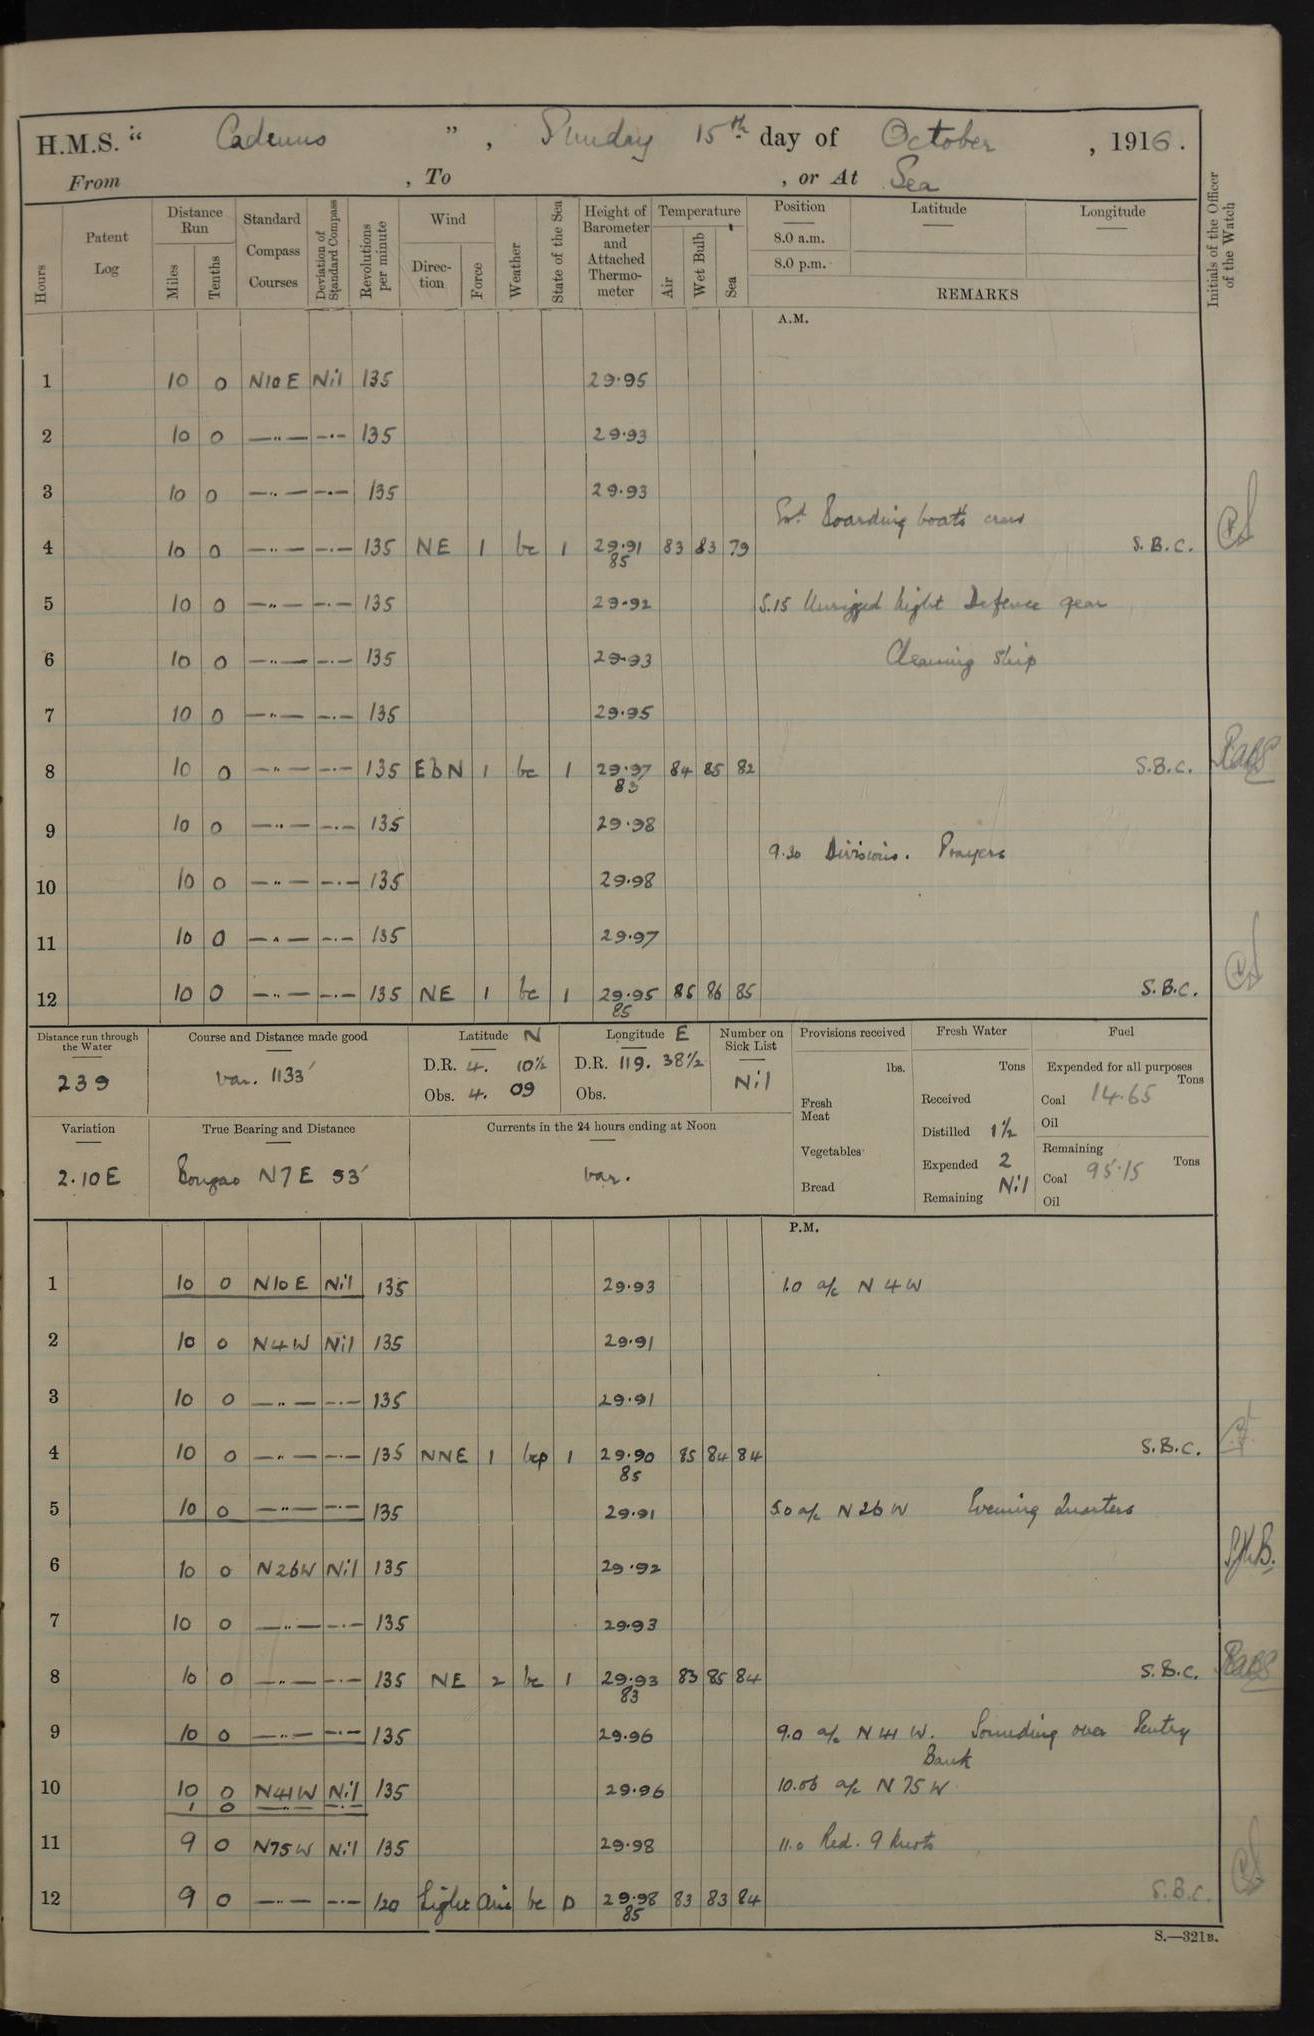 H.M.S. “ Cadmus ” , Sunday 15th day of October , 1916.
From , To , or At Sea
Hours
Patent Log
Distance Run
Miles
Tenths
Standard Compass Courses
Deviation of Standard Compass
Revolutions per minute
Wind
Direction
Force
Weather
State of the Sea
Height of Barometer and Attached Thermometer
Temperature
Air
Wet Bulb
Sea
Position
8.0 a.m.
8.0 p.m.
Latitude
Longitude
REMARKS
Initials of the Officer of the Watch
A.M.
1 10 0 N10E Nil 135 29.95
2 10 0 —〃— —〃— 135 29.93
3 10 0 —〃— —〃— 135 29.93
Boarding boat's crew
4 10 0 —〃— —〃— 135 NE 1 bc 1 29.91 83 83 79 S.B.C.
85
5 10 0 —〃— —〃— 135 29.92 5.15 Unrigged Night Defence gear
6 10 0 —〃— —〃— 135 29.93 Cleaning ship
7 10 0 —〃— —〃— 135 29.95
8 10 0 —〃— —〃— 135 EbN 1 bc 1 29.97 84 85 82 S.B.C.
83
9 10 0 —〃— —〃— 135 29.98
9.30 Divisions. Prayers
10 10 0 —〃— —〃— 135 29.98
11 10 0 —〃— —〃— 135 29.97
12 10 0 —〃— —〃— 135 NE 1 bc 1 29.95 85 86 85 S.B.C.
85
Distance run through the Water
239
Course and Distance made good
var. 1133'
Latitude N
D.R. 4. 10½
Obs. 4. 09
Longitude E
D.R. 119. 38½
Obs.
Number on Sick List
Nil
Provisions received
lbs.
Fresh Meat
Vegetables
Bread
Fresh Water
Tons
Received
Distilled 1½
Expended 2
Remaining Nil
Fuel
Expended for all purposes
Tons
Coal 14.65
Oil
Remaining
Tons
Coal 95.15
Oil
Variation
2.10E
True Bearing and Distance
Bongao N7E 53'
Currents in the 24 hours ending at Noon
var.
P.M.
1 10 0 N10E Nil 135 29.93 1.0 a/c N4W
2 10 0 N4W Nil 135 29.91
3 10 0 —〃— —〃— 135 29.91
4 10 0 —〃— —〃— 135 NNE 1 bcp 1 29.90 85 84 84 S.B.C.
85
5 10 0 —〃— —〃— 135 29.91 5.0 a/c N26W Evening Quarters
S.K.B.
6 10 0 N26W Nil 135 29.92
7 10 0 —〃— —〃— 135 29.93
8 10 0 —〃— —〃— 135 NE 2 bc 1 29.93 83 85 84 S.B.C.
83
9 10 0 —〃— —〃— 135 29.96 9.0 a/c N41W. Sounding over Pentry
Bank
10 10 0 N41W Nil 135 29.96 10.06 a/c N75W
1 0 —〃— —〃—
11 9 0 N75W Nil 135 29.98 11.0 Red. 9 knots
12 9 0 —〃— —〃— 120 Light airs bc 0 29.98 83 83 84 S.B.C.
85
S.—321B.